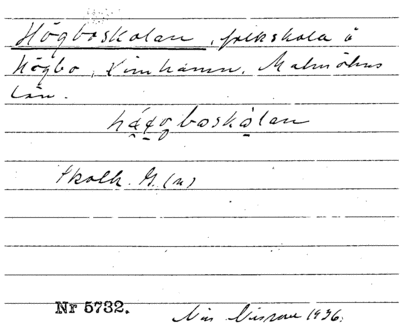 Högboskolan, folkskola å
Högbo, Limhamn, Malmöhus
län.
hágoboskólan
Skolk. G. (m)
Nr 5732. Nils 1936.